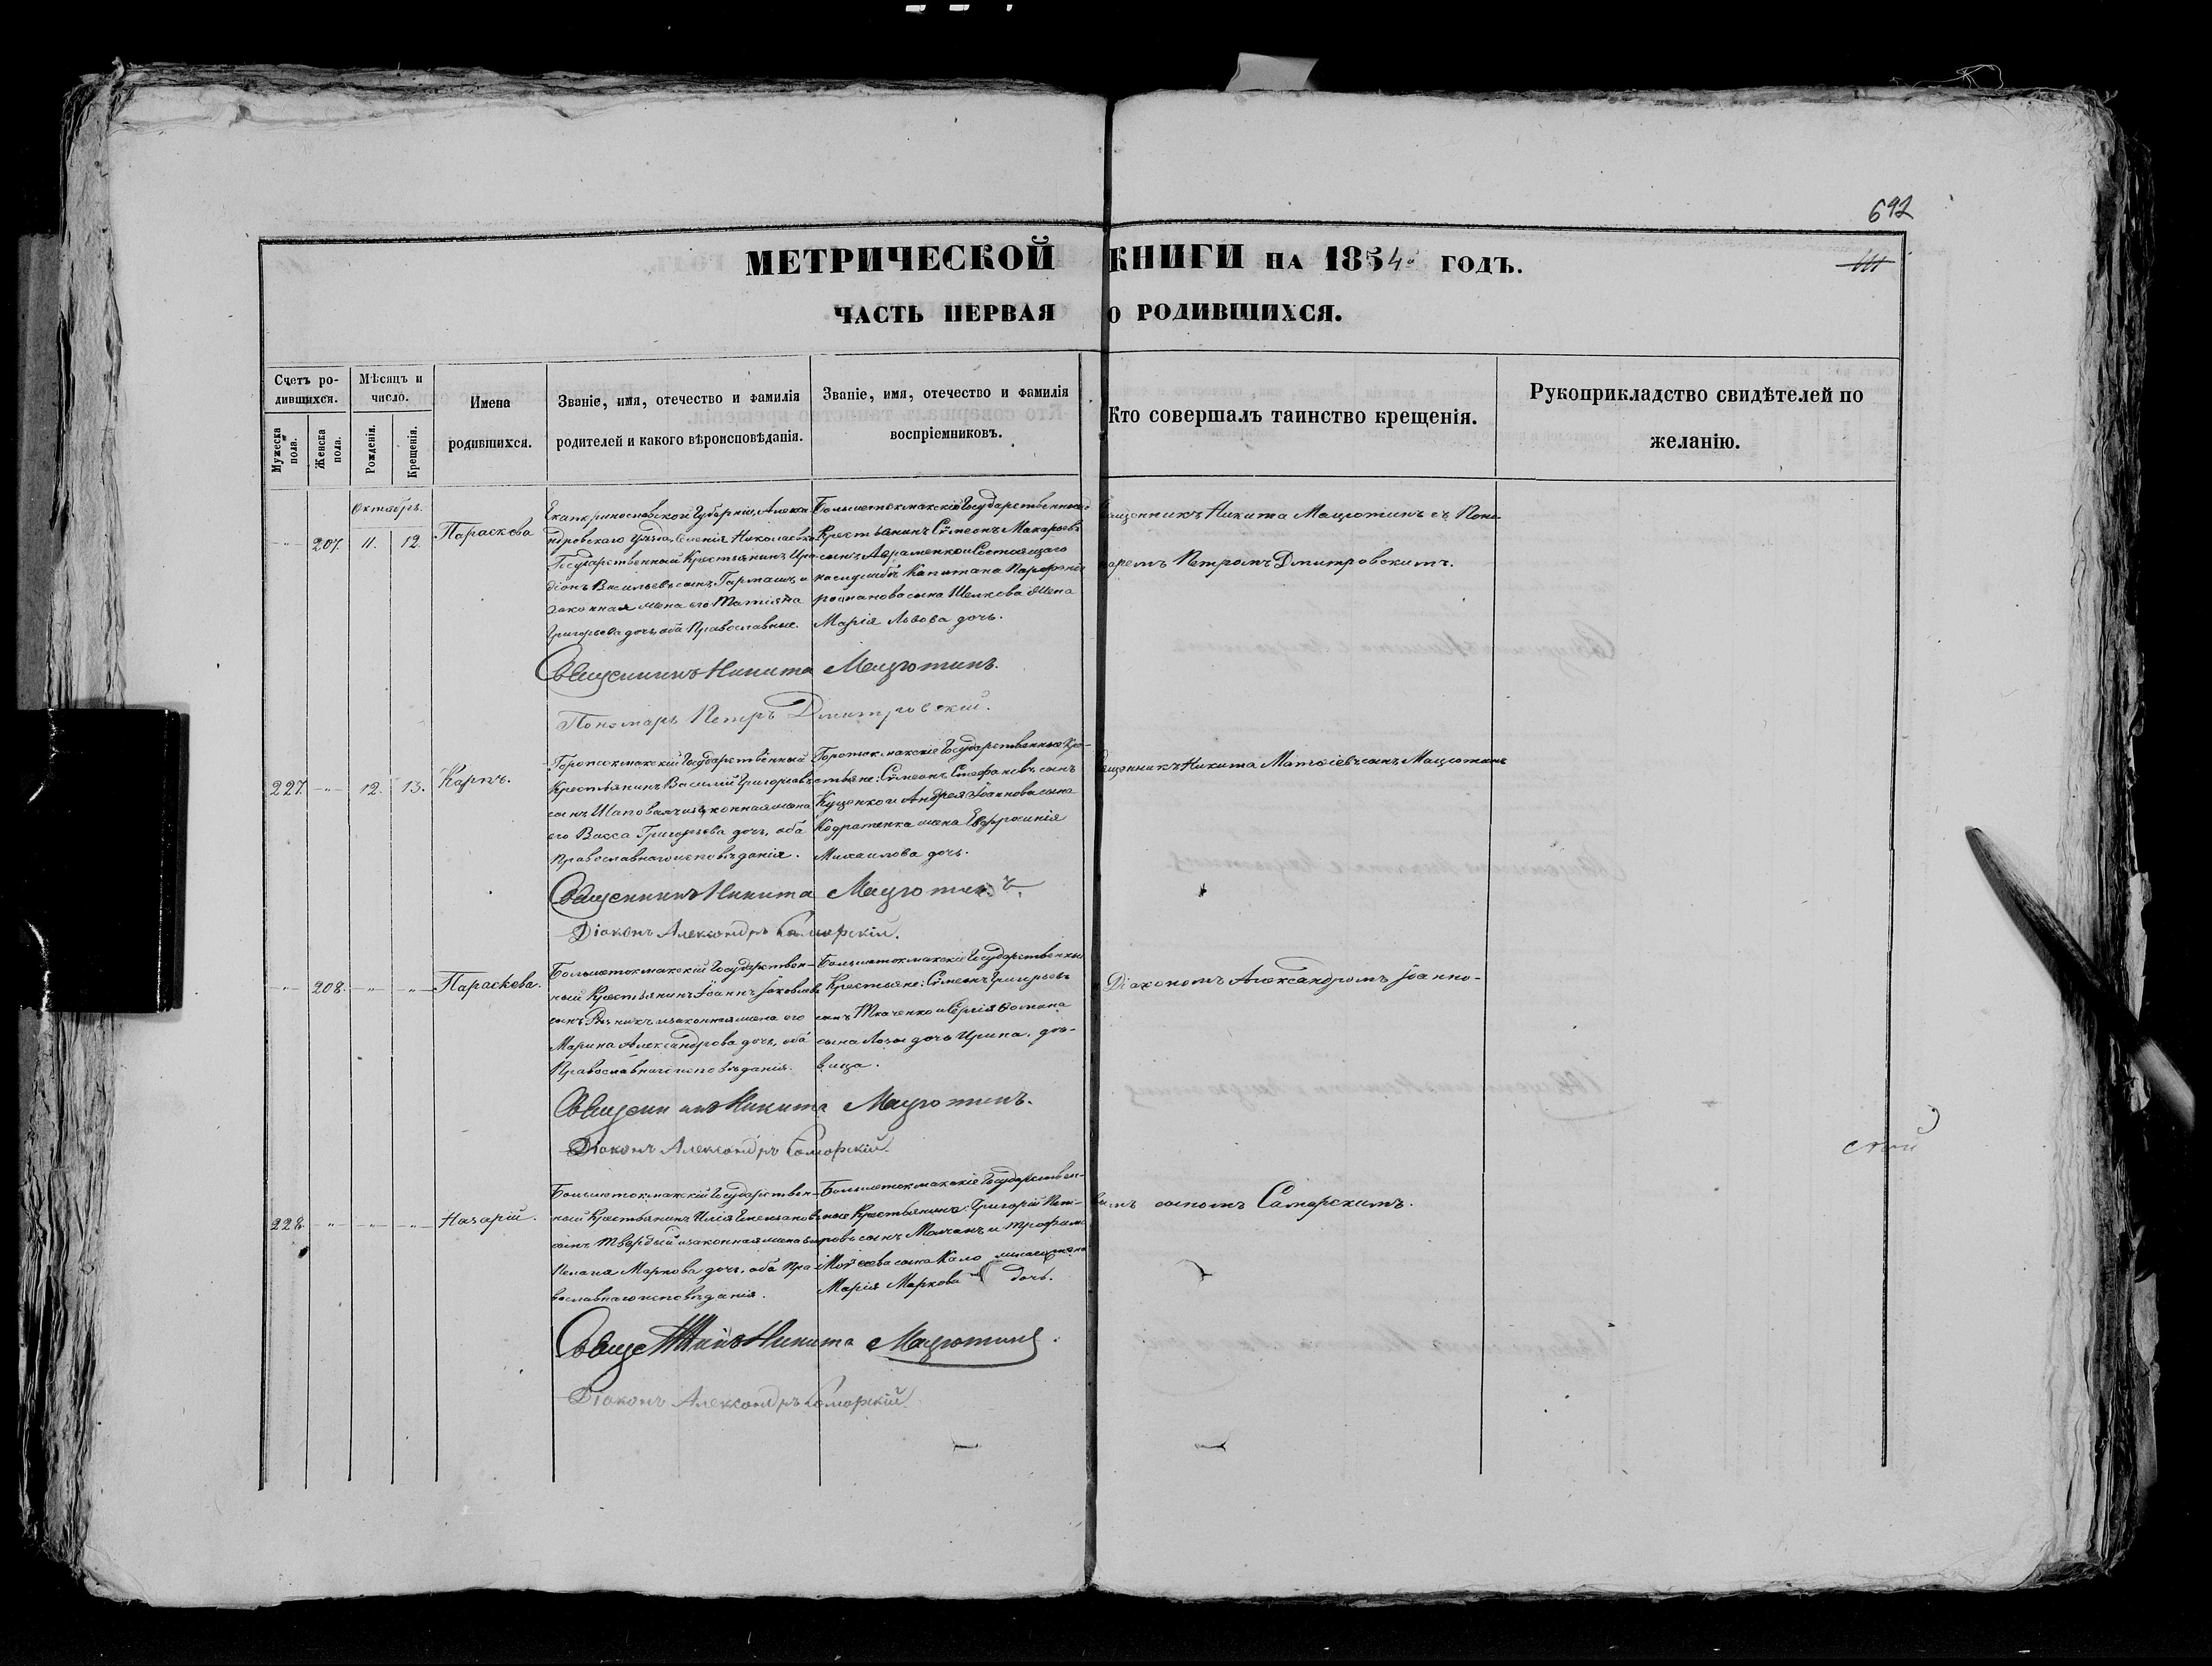 692
МЕТРИЧЕСКОЙ КНИГИ НА 1854 ГОДЪ.
ЧАСТЬ ПЕРВАЯ О РОДИВШИХСЯ.
Счетъ родившихся.
Мужеска пола.
Женска пола.
Мѣсяцъ и число.
Рожденія.
Крещенія.
Имена родившихся.
Званіе, имя, отечество и фамилія родителей и какого вѣроисповѣданія.
Званіе, имя, отечество и фамилія воспріемниковъ.
Кто совершалъ таинство крещенія.
Рукоприкладство свидѣтелей по желанію.
Октябрь.
-"- 207. 11. 12. Параскева
Екатеринославской Губерніи, Алекса-
ндровскаго уѣзда, Селенія Николаевки
Государственный Крестьянинъ Иро-
діонъ Васильевъ сынъ Гармашъ и
законная жена его Татіяна
Григорьева дочь, оба Православные.
Большетокмакскій Государственный
Крестьянинъ Сѵмеонъ Макарьевъ
сынъ Авраменко и Состоящаго
на службѣ Капитана
сына Шелкова жена
Марія Львова дочь.
Священникъ Никита Мацютинъ съ Поно-
маремъ Петромъ Дмитровскимъ.
Священникъ Никита Мацютинъ.
Пономарь Петръ Дмитровскій.
227. -"- 12. 13. Карпъ.
Государственный
Крестьянинъ Василій Григорьевъ
сынъ и законная жена
его Васса Григорьева дочь, оба
Православнаго исповѣданія.
Государственные Кре-
стьяне: Сѵмеонъ Стефановъ сынъ
Куценко и Андрея Іоаннова сына
Кодратенка жена Евфросинія
Михаилова дочь.
Священникъ Никита Матѳіевъ сынъ Мацютинъ
Священникъ Никита Мацютинъ.
Діаконъ Александръ Самарскій.
-"- 208. -"- -"- Параскева.
Большетокмакскій Государствен-
ный Крестьянинъ Іоаннъ Іаковлевъ
сынъ Рѣзникъ и законная жена его
Марина Александрова дочь, оба
Православнаго исповѣданія.
Большетокмакскіе Государственные
Крестьяне: Сѵмеонъ Григорьевъ
сынъ Ткаченко и Сергія Ѳомина
сына Лозы дочь Ирина, дѣ-
вица.
Діакономъ Александромъ Іоанно-
Священникъ Никита Мацютинъ.
Діаконъ Александръ Самарскій.
228. -"- -"- -"- Назарій.
Большетокмакскій Государствен-
ный Крестьянинъ Илія
сынъ Твердый и законная жена его
Маркова дочь, оба Пра-
вославнаго исповѣданія.
Большетокмакскіе Государствен-
ные Крестьянинъ: Григорій Пет-
ровъ сынъ Молчанъ и Трофима
Моѵсеева сына жена
Марія Маркова дочь.
вымъ сыномъ Самарскимъ.
Священникъ Никита Мацютинъ.
Діаконъ Александръ Самарскій.